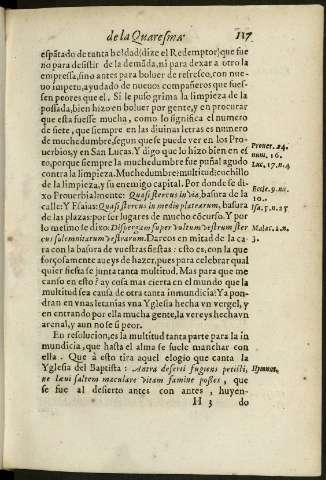 de la Quaresma 117
espātado de tanta beldad(dize el Redemptor)que fue
no para desistir de la demāda, ni para dexar a otro la
empressa, sino antes para boluer de refresco, con nue-
uo impetu, ayudado de nueuos compañeros que fues-
sen peores que el. Si le puso grima la limpieza de la
possada, bien hizo en boluer por gente, y en procurar
que esta fuesse mucha, como lo significa el numero
de siete, que siempre en las diuinas letras es numero
de muchedumbre, segun que se puede ver en los Pro-
Prouer. 24.
uerbios, y en San Lucas. Y digo que lo hizo bien en es
num. 16.
to, porque siempre la muchedumbre fue puñal agudo
Luc. 17. n. 4
contra la limpieza. Muchedumbre: multitud: cuchillo
de la limpieza, y su enemigo capital. Por donde se di-
Eccle. 9. nu.
xo Prouerbialmente: Quasi stercus in via, basura de la
10.
calle: Y Esaias: Quasi stercus in medio platearum, basura
Isa. 5. n. 25
de las plazas: por ser lugares de mucho cōcurso. Y por
lo mesmo se dixo: Dispergam super vultum vestrum ster
Malac. 2. n.
cus solemnitatum vestrarum. Dareos en mitad de la ca-
3.
ra con la basura de vuestras fiestas: esto es, con la que
forçosamente aueys de hazer, pues para celebrar qual
quier fiesta se junta tanta multitud. Mas para que me
canso en esto? ay cosa mas cierta en el mundo que la
multitud sea causa de otra tanta inmundicia? Ya pon-
dran en vnas letanias vna Yglesia hecha vn vergel, y
en entrando por ella mucha gente, la vereys hecha vn
arenal, y aun no se si peor.
En resolucion, es la multitud tanta parte para la in
mundicia, que hasta el alma se suele manchar con
ella. Que à esto tira aquel elogio que canta la
Yglesia del Baptista: Antra deserti fugiens petisti,
Hymnus.
ne leui saltem maculare vitam famine posses, que
se fue al desierto antes con antes, huyen-
H 3 do